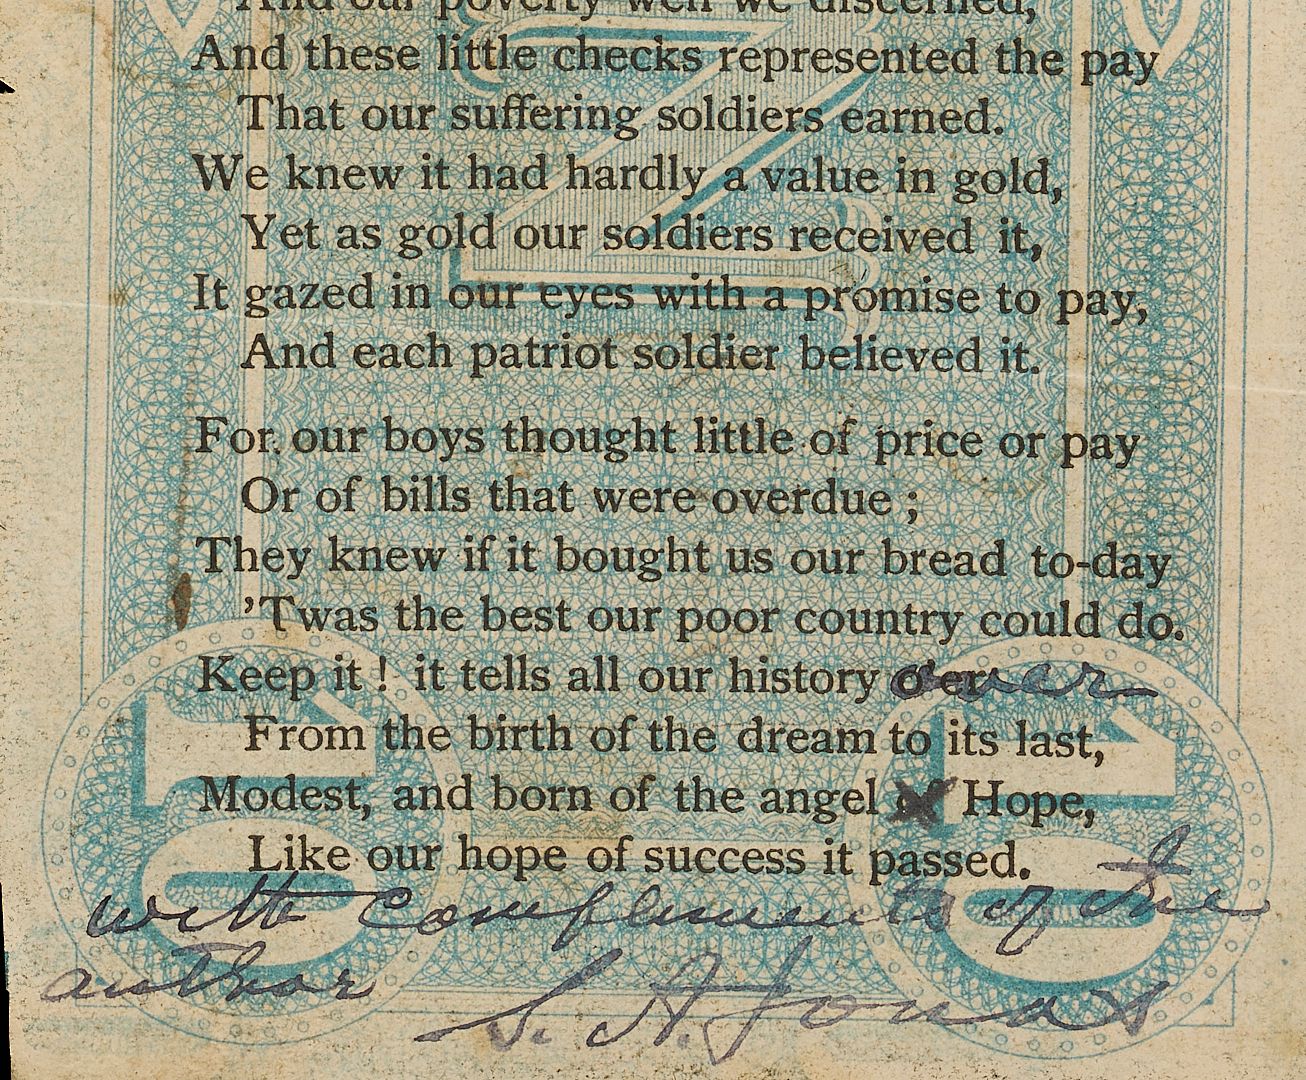 And our poverty well we discerned,
And these little checks represented the pay
That our suffering soldiers earned.
We knew it had hardly a value in gold,
Yet as gold our soldiers received it,
It gazed in our eyes with a promise to pay,
And each patriot soldier believed it.
For our boys thought little of price or pay
Or of bills that were overdue ;
They knew if it bought us our bread to-day
’Twas the best our poor country could do.
Keep it ! it tells all our history over
From the birth of the dream to its last,
Modest, and born of the angel Hope,
Like our hope of success it passed.
with compliments of the
author S. A. Jonas
10 10